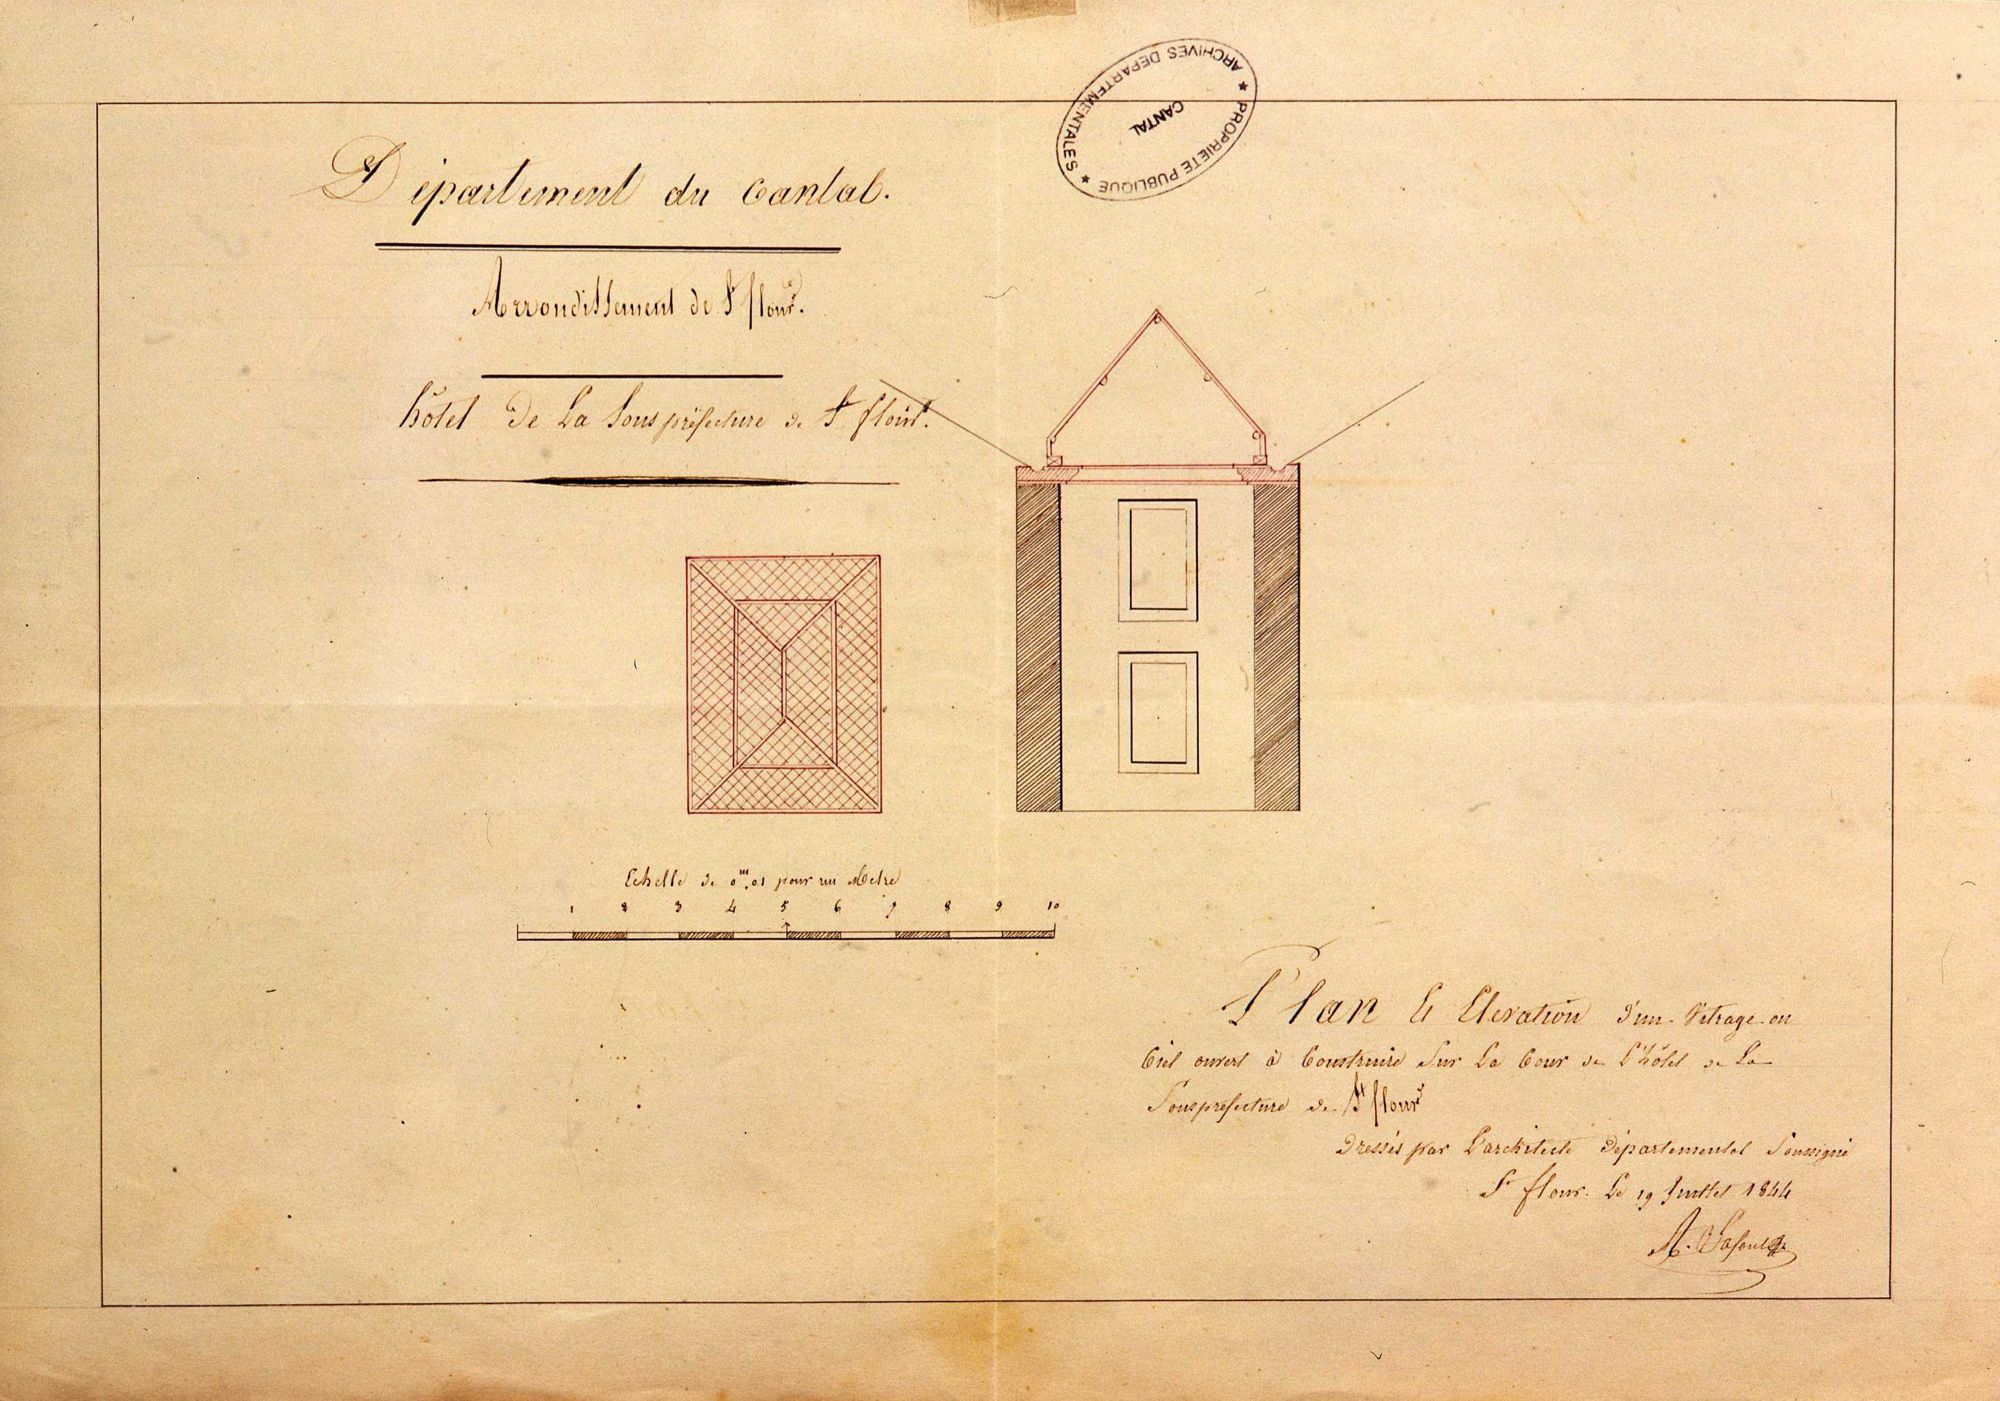 Département du Cantal.
Arrondissement de St flour.
hôtel De La Souspréfecture de St flour.
ARCHIVES DEPARTEMENTALES
CANTAL
PROPRIETE PUBLIQUE
Echelle de 0m.01 pour un Metre
1 2 3 4 5 6 7 8 9 10
Plan Et Elevation d'un Vitrage ou
Ciel ouvert à Construire Sur La Cour de L'hôtel de La
Souspréfecture de St flour
Dressés par L'architecte Départemental Soussigné
St flour. Le 19 Juillet 1844